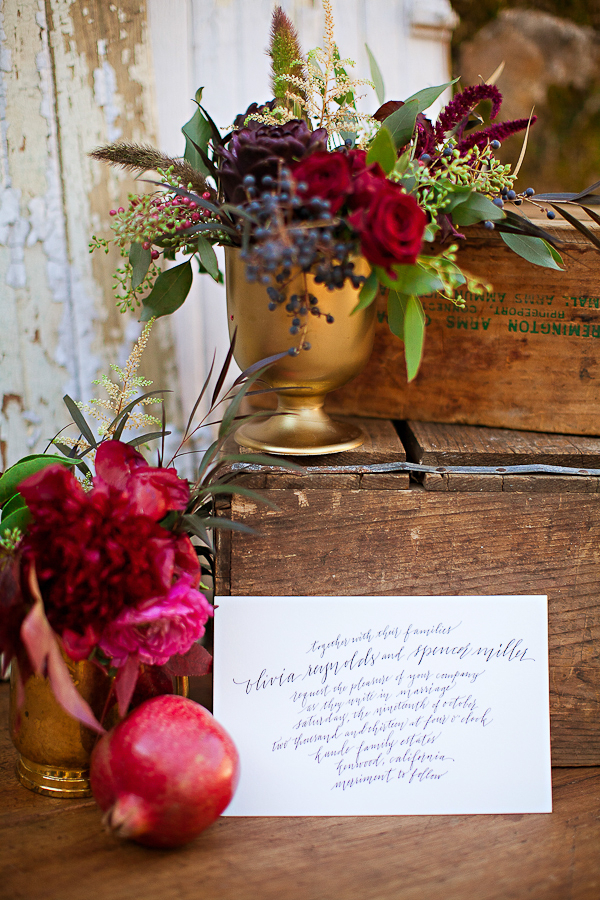 REMINGTON ARMS
BRIDGEPORT, CONN.
together with their families
olivia reynolds and spencer miller
request the pleasure of your company
as they unite in marriage
saturday, the nineteenth of october
two thousand and thirteen at four o'clock
kunde family estates
kenwood, california
merriment to follow